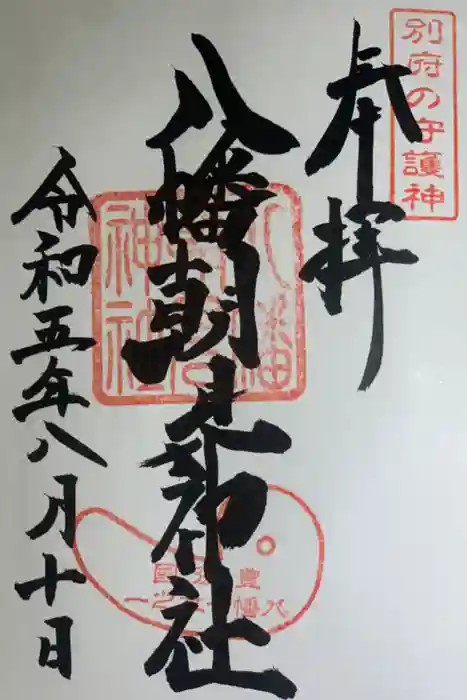 別府の守護神
奉拝
八幡朝見神社
令和五年八月十日
八幡朝見神社
豊後国
八幡一之